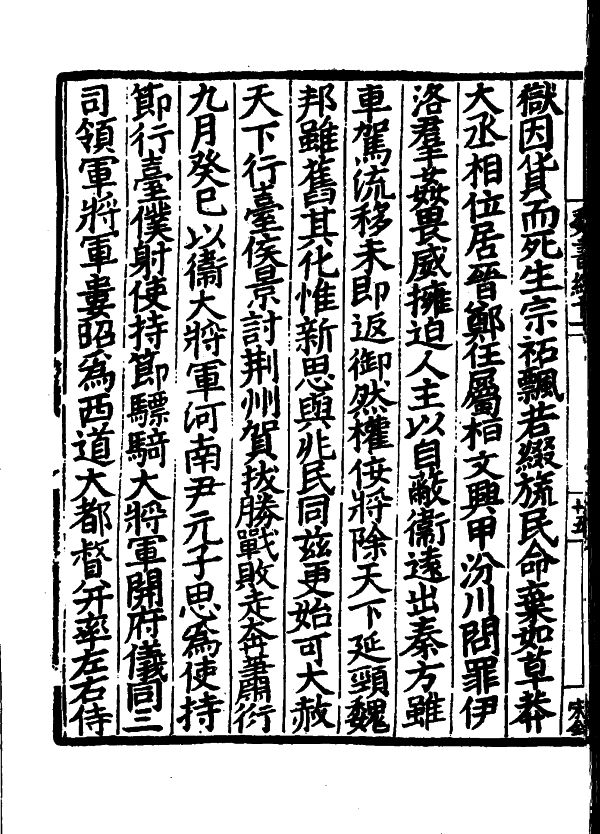 獄因貨而死生宗祏飄若綴旒民命棄如草莽
大丞相位居晉鄭任屬桓文興甲汾川問罪伊
洛羣姦畏威擁迫人主以自蔽衞遠出秦方雖
車駕流移未即返御然權佞將除天下延頸魏
邦雖舊其化惟新思與兆民同兹更始可大赦
天下行臺侯景討荆州賀拔勝戰敗走奔蕭衍
九月癸巳以衞大將軍河南尹元子思爲使持
節行臺僕射使持節驃騎大將軍開府儀同三
司領軍將軍婁昭爲西道大都督并率左右侍